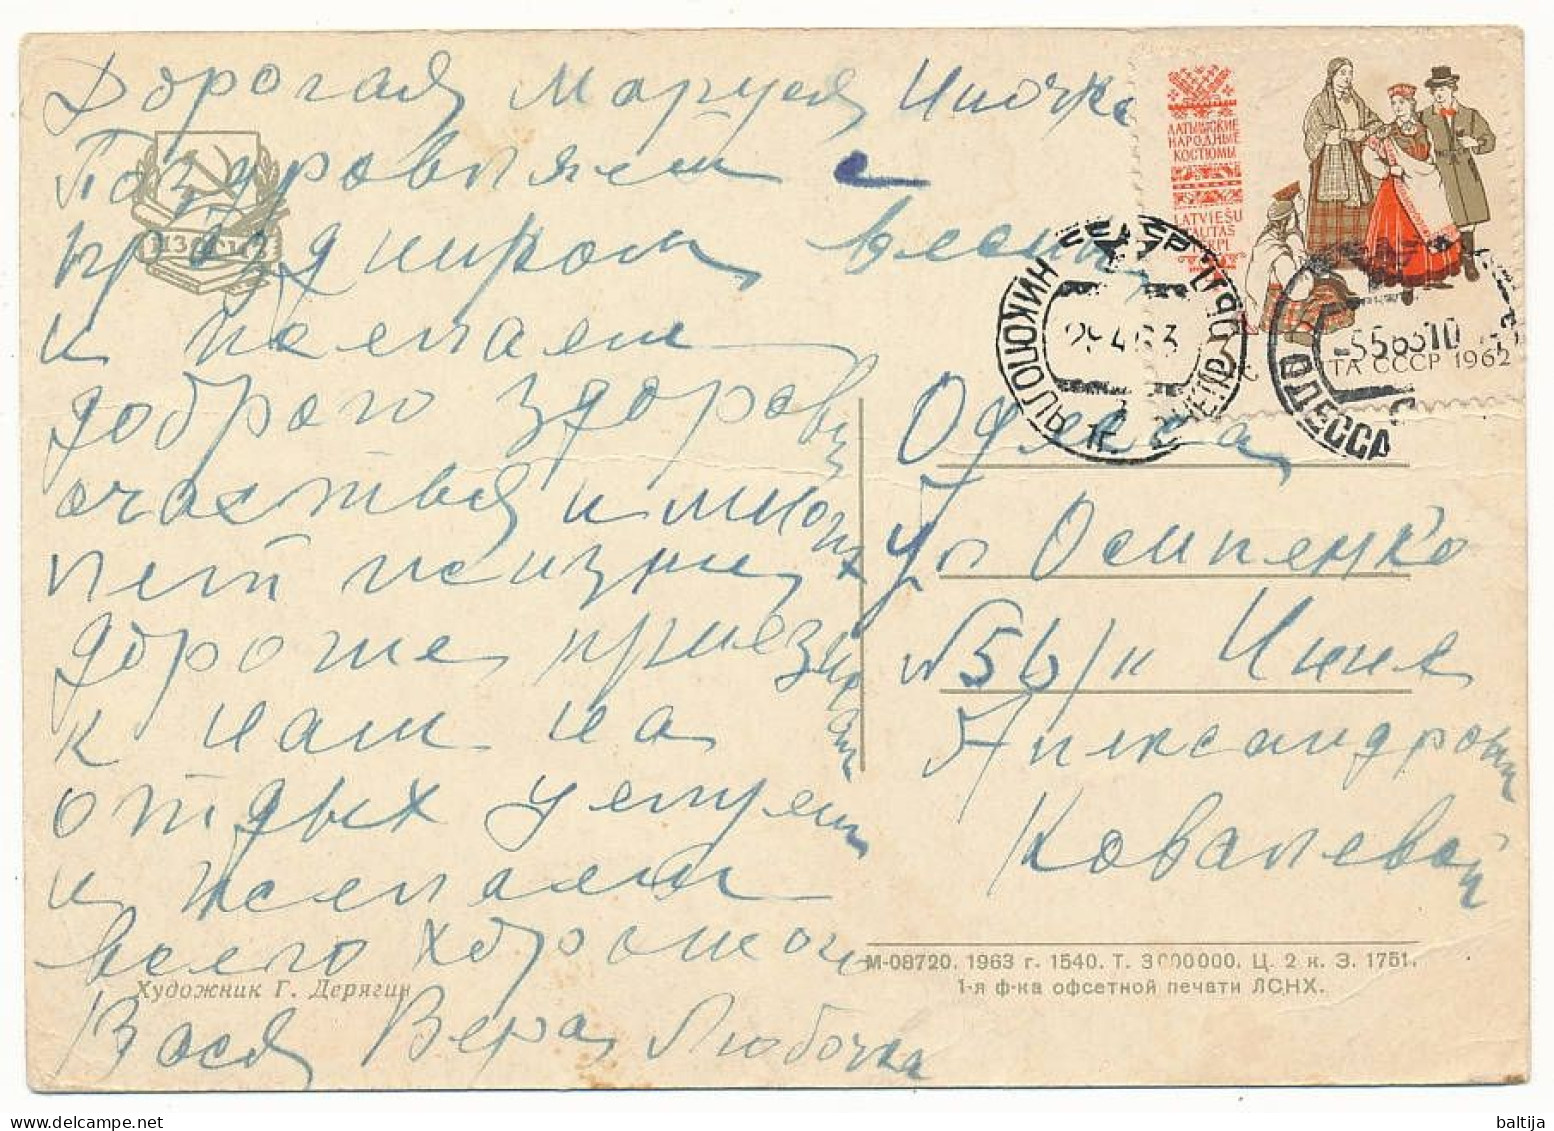 Дорогая Маруся Иночка
Поздровляем с
праздником весны
и желаем
доброго здоровя
счастья и многих
лет жизни
дороше приезжай
к нам на
отдых целуем
и желаем
всего хорошого
Вася Вера Любочка
ИЗОГИЗ
Художник Г. Дерягин
ЛАТЫШСКИЕ
НАРОДНЫЕ
КОСТЮМЫ
LATVIEŠU
TAUTAS
ПОЧТА СССР 1962
СССР
НИКОПОЛЬ
29.4.63
-556310
ОДЕССА
Одесса
Ул Осипенко
№56/к Инне
Александровни
Ковалевой
М-08720. 1963 г. 1540. Т. 3000000. Ц. 2 к. З. 1751.
1-я ф-ка офсетной печати ЛСНХ.
baltija